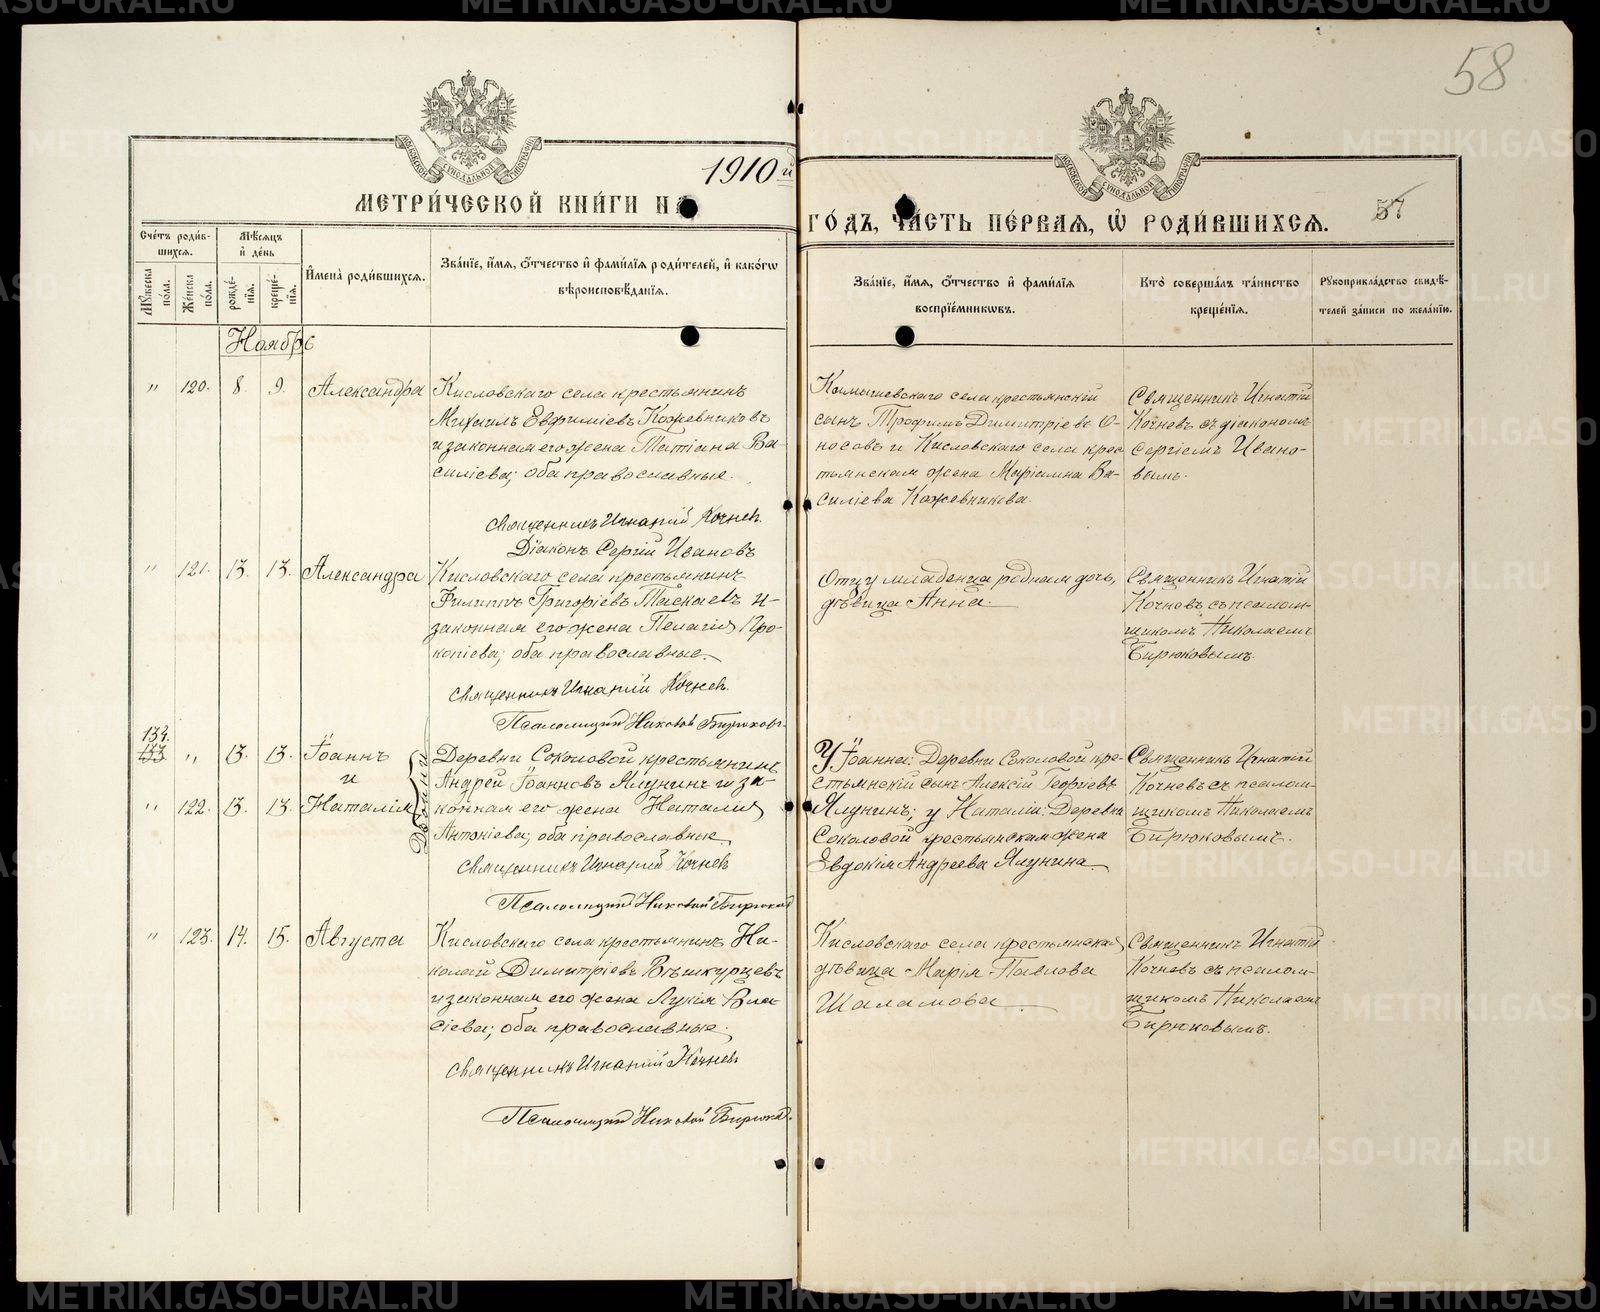 58
МОСКОВСКОЙ СѴНОДАЛЬНОЙ ТИПОГРАФІИ
МОСКОВСКОЙ СѴНОДАЛЬНОЙ ТИПОГРАФІИ
1910й
МЕТРИ́ЧЕСКОЙ КНИ́ГИ НА
ГО́ДЪ, ЧА́СТЬ ПЕ́РВАЯ, Ѽ РОДИ́ВШИХСЯ.
57
Сче́тъ роди́в-
шихся.
Мѣ́сяцъ
и҆ де́нь
Мꙋ́жеска по́ла.
Же́нска по́ла.
рожде́-
нїя.
креще́-
нїя.
И҆мена̀ роди́вшихся.
Зва́нїе, и҆́мя, ѻ҆́тчество и҆ фами́лїя роди́телей, и҆ како́гѡ
вѣроисповѣ́данїя.
Зва́нїе, и҆́мя, ѻ҆́тчество и҆ фами́лїя
воспрїе́мникѡвъ.
Кто̀ соверша́лъ та́инство
креще́нїя.
Рꙋкоприкла́дство свидѣ́-
телей за́писи по жела́нїю.
Ноябрь
" 120. 8. 9. Александра
Кисловскаго села крестьянинъ
Михаилъ Евфиміевъ Кожевниковъ
и законная его жена Татіана Ва-
силіева; оба православные.
Священникъ Игнатій Кочнев.
Діаконъ Сергій Ивановъ
Камышевскаго села крестьянскій
сынъ Трофимъ Димитріевъ О-
носовъ и Кисловскаго села крес
тьянская жена Маріамна Ва-
силіева Кожевникова.
Священникъ Игнатій
Кочневъ съ діакономъ
Сергіемъ Ивано-
вымъ.
" 121. 13. 13. Александра
Кисловскаго села крестьянинъ
Филиппъ Григоріевъ Таскаевъ и
законная его жена Пелагія Про-
копіева; оба православные.
Священникъ Игнатій Кочнев.
Псаломщикъ Николай Бирюков.
Отцу младенца родная дочь,
дѣвица Анна.
Священникъ Игнатій
Кочневъ съ псалом-
щикомъ Николаемъ
Бирюковымъ.
134.
133 " 13. 13. Іоаннъ
и
" 122. 13. 13. Наталія
Двойни
Деревни Соколовой крестьянинъ
Андрей Іоанновъ Ялунинъ и за-
конная его жена Наталія
Антоніева; оба православные
Священникъ Игнатій Кочнев
Псаломщикъ Николай Бирюков
У Іоанна: Деревни Соколовой кре-
стьянскій сынъ Алексій Георгіевъ
Ялунинъ; у Наталіи: Деревни
Соколовой крестьянская жена
Евдокія Андреева Ялунина.
Священникъ Игнатій
Кочневъ съ псалом-
щикомъ Николаемъ
Бирюковымъ.
" 123. 14. 15. Августа
Кисловскаго села крестьянинъ Ни-
колай Димитріевъ Вѣшкурцевъ
и законная его жена Лукія Вла-
сіева; оба православные.
Священникъ Игнатій Кочнев
Псаломщикъ Николай Бирюков.
Кисловскаго села крестьянская
дѣвица Марія Павлова
Шаламова.
Священникъ Игнатій
Кочневъ съ псалом-
щикомъ Николаемъ
Бирюковымъ.
METRIKI.GASO-URAL.RU